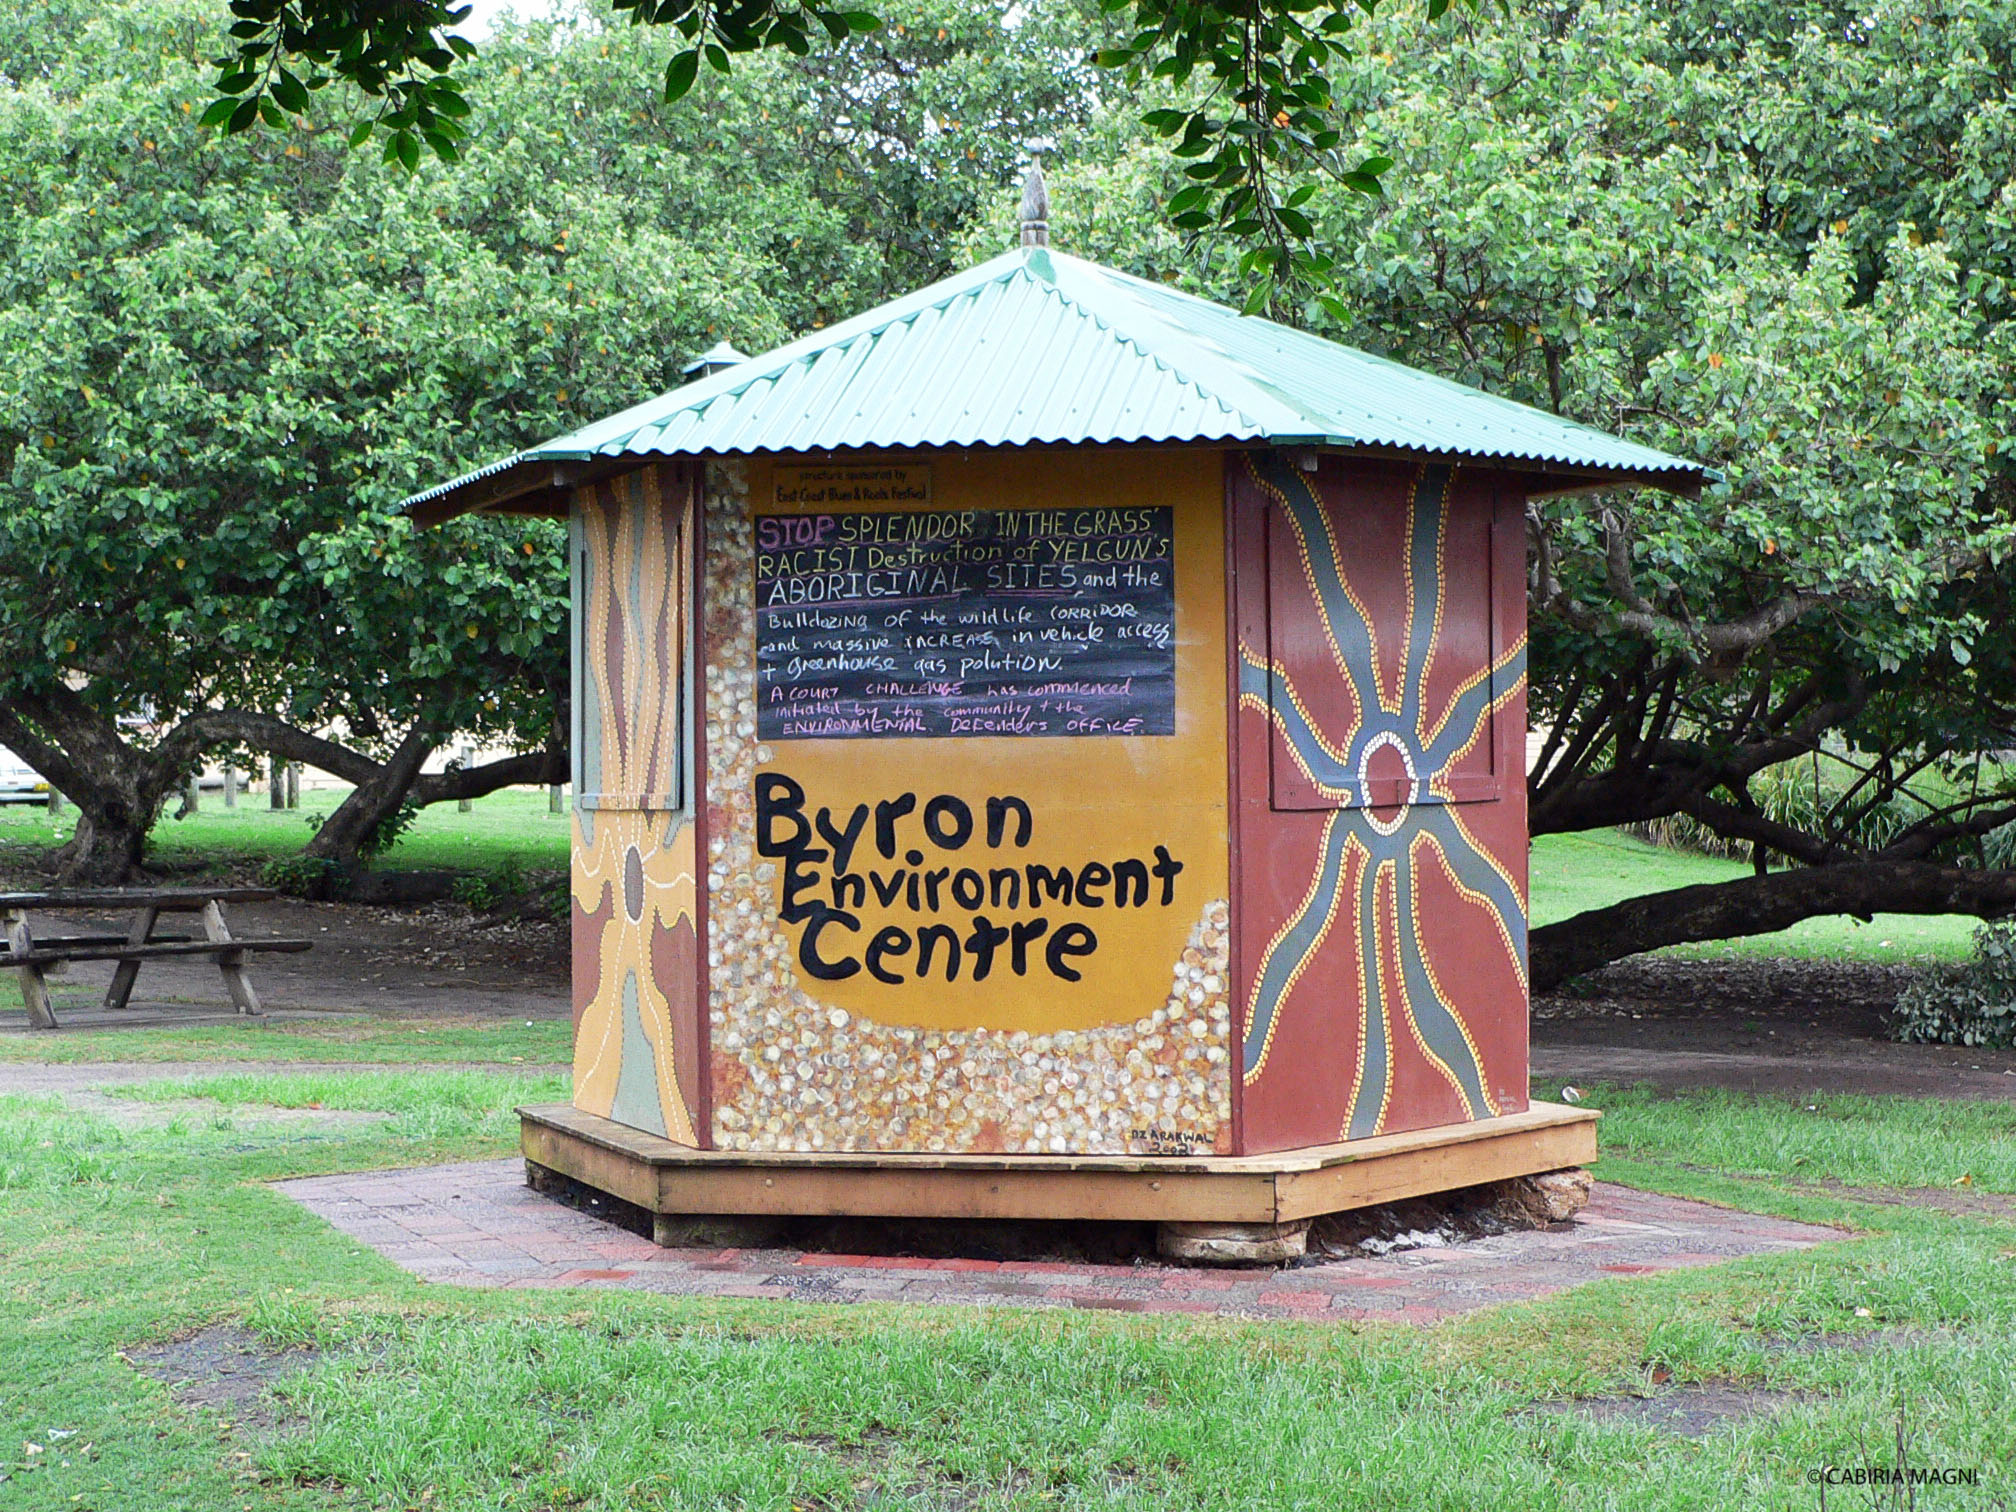 structure sponsored by
East Coast Blues & Roots Festival
STOP SPLENDOR IN THE GRASS'
RACIST Destruction of YELGUN'S
ABORIGINAL SITES and the
Bulldozing of the wildlife CORRIDOR
and massive INCREASE in vehicle access
+ greenhouse gas polution.
A COURT CHALLENGE has commenced
initiated by the community + the
ENVIRONMENTAL Defenders OFFICE.
Byron
Environment
Centre
DZ ARAKWAL
2002
© CABIRIA MAGNI